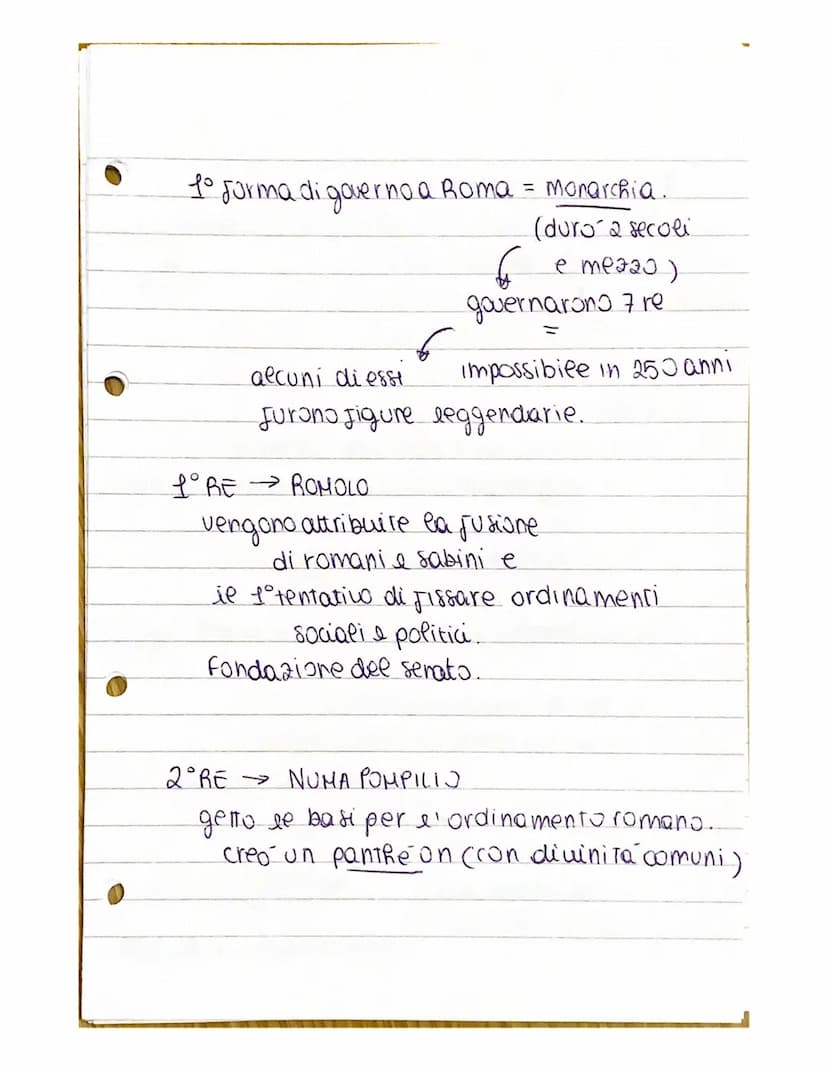 1° forma di governo a Roma = Monarchia.
(durò 2 secoli
e mezzo)
governarono 7 re
=
alcuni di essi impossibile in 250 anni
furono figure leggendarie.
1° RE → ROMOLO
vengono attribuire la fusione
di romani e sabini e
il 1° tentativo di fissare ordinamenti
sociali e politici.
Fondazione del senato.
2° RE → NUMA POMPILIO
gettò le basi per l'ordinamento romano.
creò un panthéon (con divinità comuni)